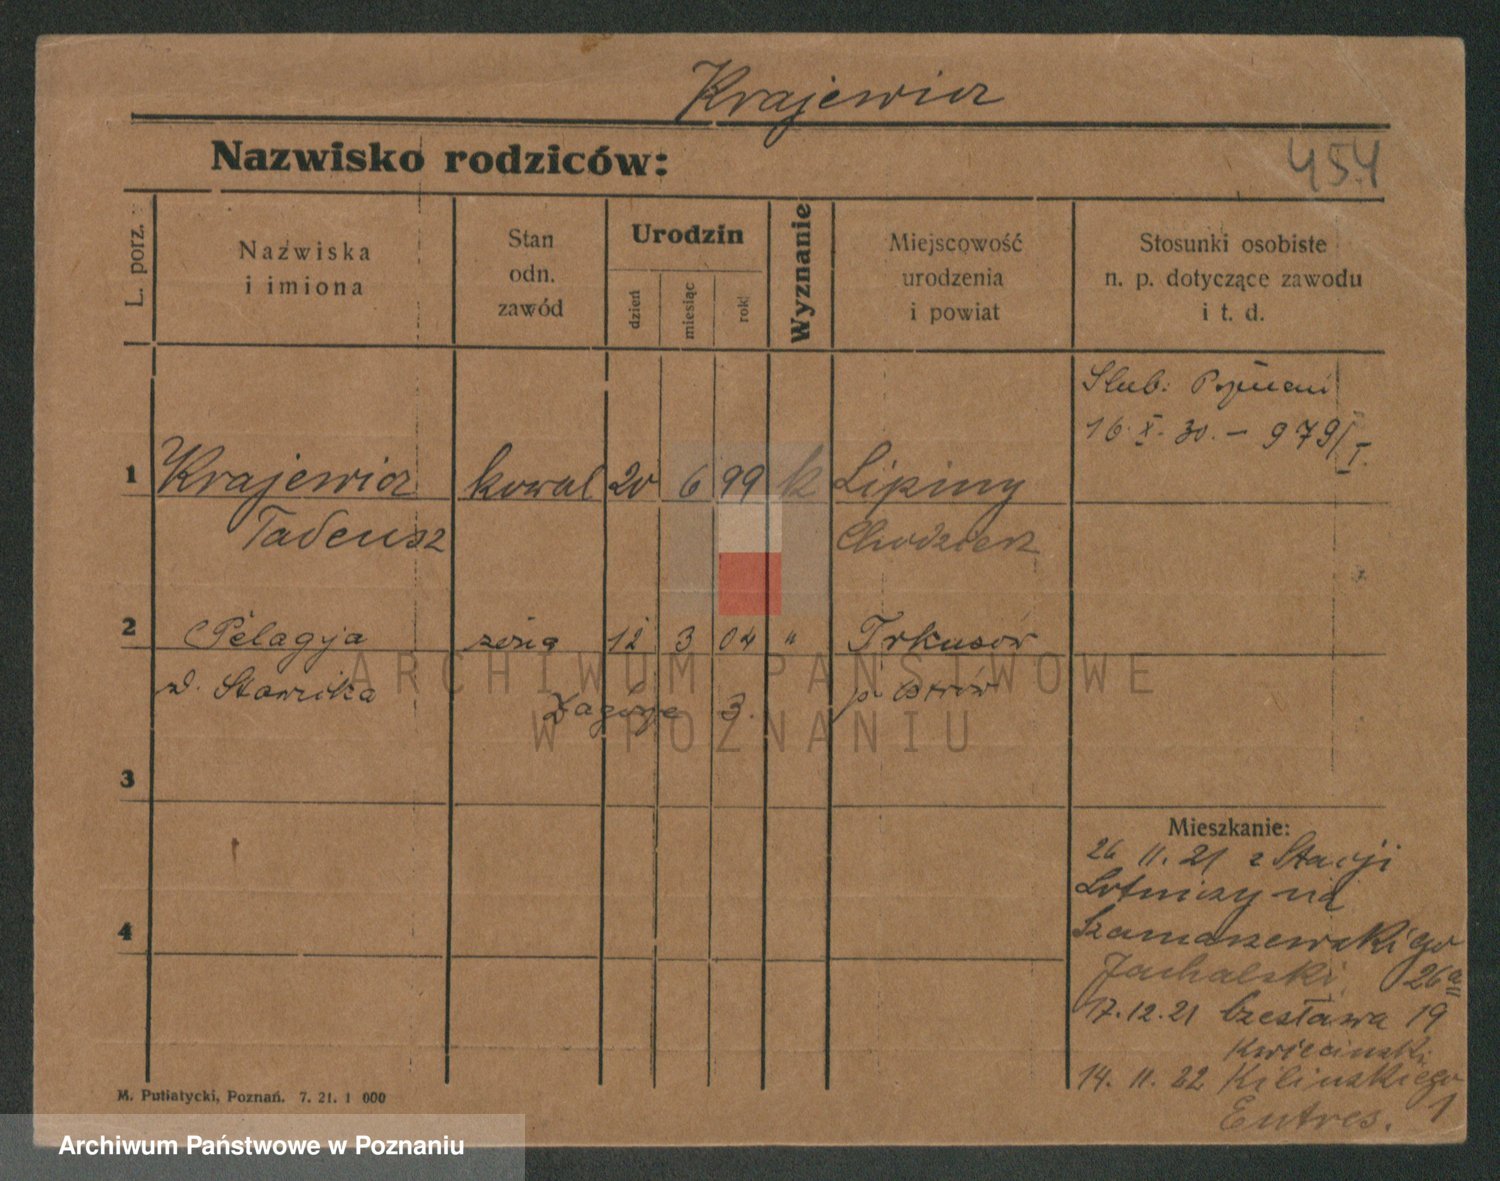 Krajewicz
Nazwisko rodziców:
454
L. porz.
Nazwiska
i imiona
Stan
odn.
zawód
Urodzin
dzień
miesiąc
rok
Wyznanie
Miejscowość
urodzenia
i powiat
Stosunki osobiste
n. p. dotyczące zawodu
i t. d.
Slub: Poznań
16. X. 30. – 979/I.
1 Krajewicz kowal 20 6 99 k Lipiny
Tadeusz Chodzież
2 Pelagja żona 12 3 04 " Trkusów
z. Stawika p. Ostrów
Zagórze 3.
3
4
Mieszkanie:
26 11. 21 z Stacji
Lotniczy na
Szamarzewskiego
Jachalski 26a
17.12.21 Czesława 19
Kwieciński
14. 11. 22 Kilińskiego 1
Entres.
M. Putiatycki, Poznań. 7. 21. 1 000
ARCHIWUM PAŃSTWOWE
W POZNANIU
Archiwum Państwowe w Poznaniu